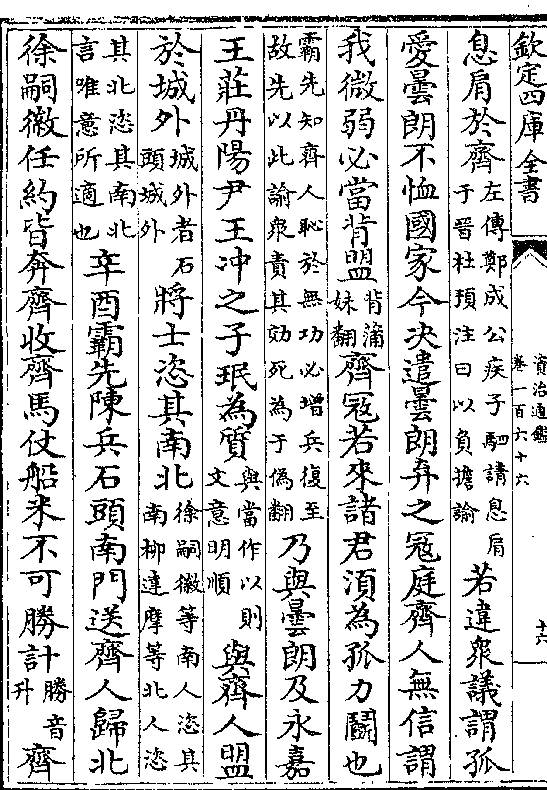 欽定四庫全書
資治通鑑
卷一百六十六
十六
息肩於齊左傳鄭成公疾子駟請息肩于晉杜預注曰以負擔諭若違衆議謂孤
愛曇朗不恤國家今决遣曇朗弃之冦庭齊人無信謂
我微弱必當背盟背蒲妹翻齊冦若來諸君須為孤力鬬也
霸先知齊人恥於無功必增兵復至故先以此諭衆責其効死為于偽翻乃與曇朗及永嘉
王莊丹陽尹王冲之子珉為質與當作以則文意明順與齊人盟
於城外城外者石頭城外將士恣其南北徐嗣徽等南人恣其南柳達摩等北人恣
其北恣其南北言唯意所適也辛酉霸先陳兵石頭南門送齊人歸北
徐嗣徽任約皆奔齊收齊馬仗船米不可勝計勝音升齊